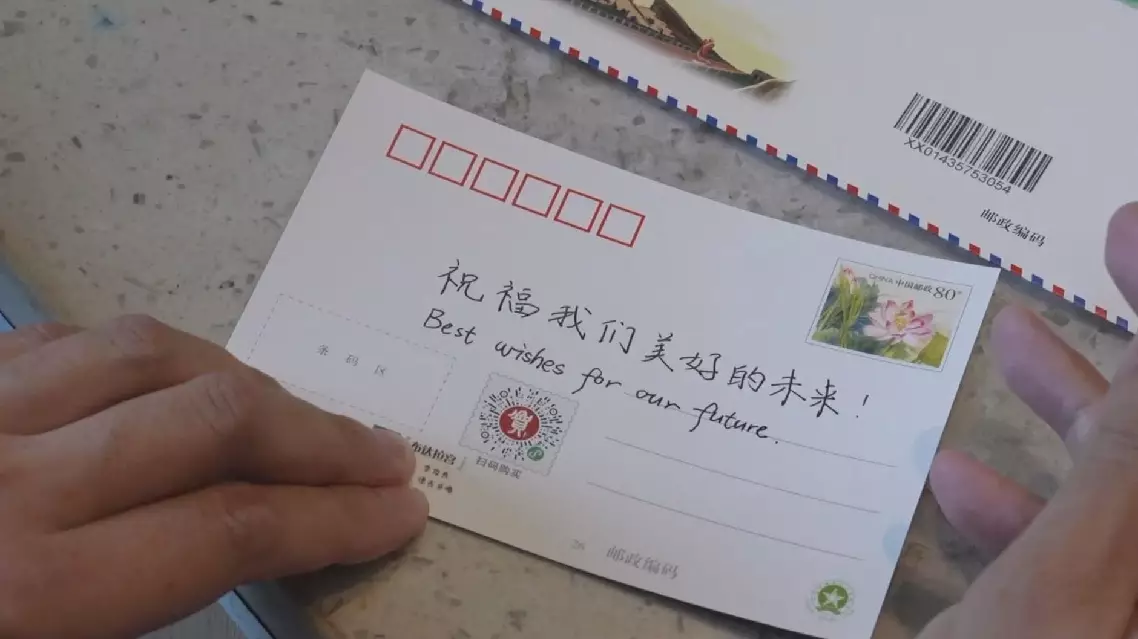 XX01435753054
邮政编码
CHINA 中国邮政 80分
祝福我们美好的未来！
Best wishes for our future.
条码区
扫码购买
布达拉宫
26 邮政编码